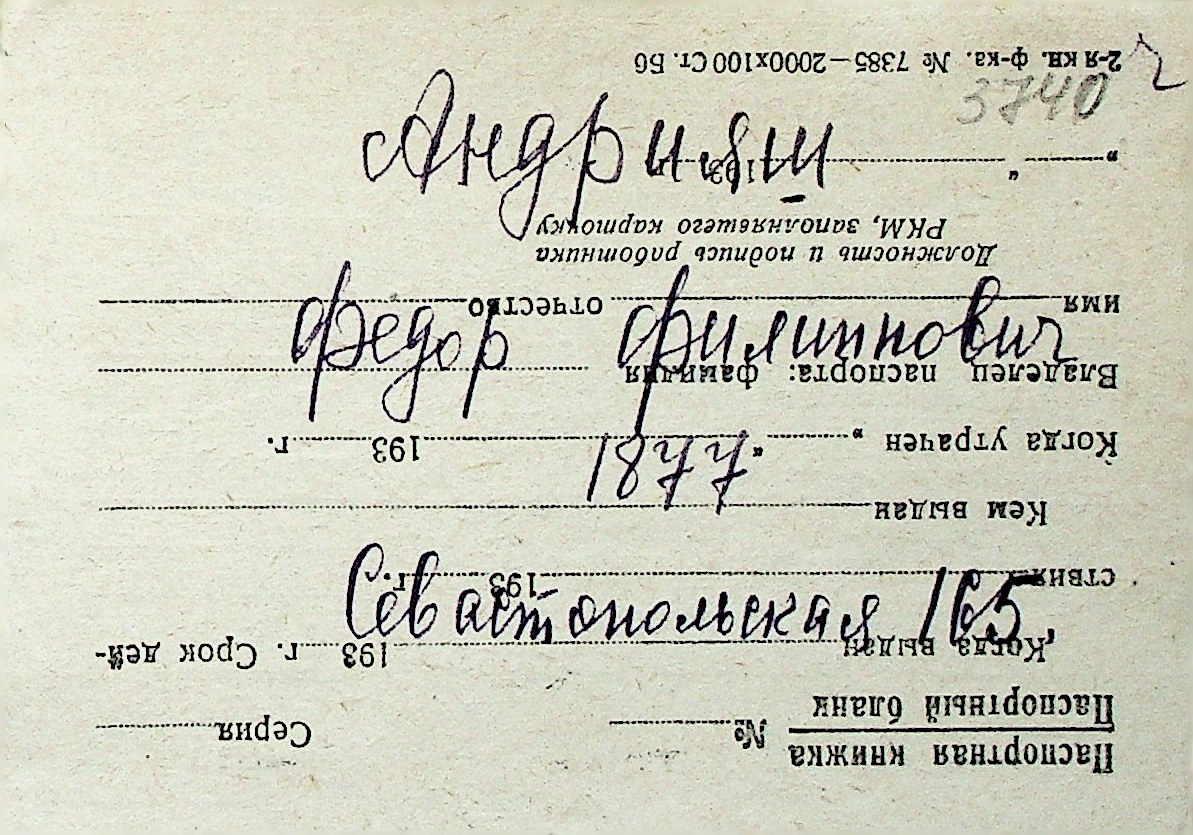 Андрияш
Федор Филиппович
1877
Севастопольская 165
3740
Паспортная книжка
Паспортный бланк
№ Серия
Когда выдан 193 г. Срок дей-
ствия 193 г.
Кем выдан
Когда утрачен „ “ 193 г.
Владелец паспорта: фамилия
имя отчество
Должность и подпись работника
РКМ, заполнявшего карточку
„ “ 193 г.
2-я кн. ф-ка. № 7385—2000х100 Ст. Б6